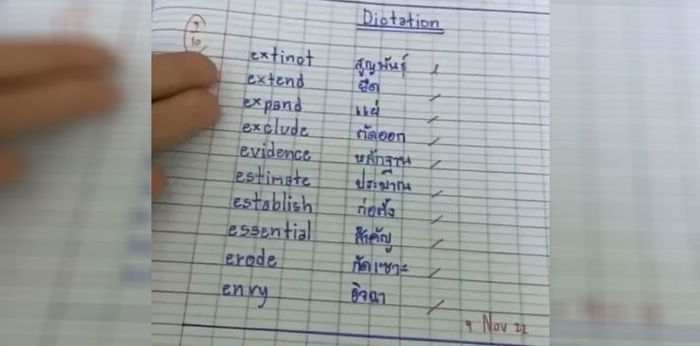 9
10
Diotation
extinot สูญพันธุ์
extend ยืด
expand แผ่
exclude ตัดออก
evidence หลักฐาน
estimate ประมาณ
establish ก่อตั้ง
essential สำคัญ
erode กัดเซาะ
enry อิจฉา
9 Nov 22